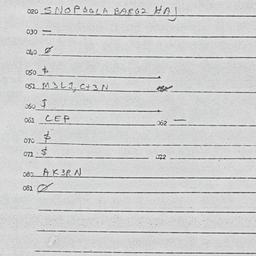 020 SNOP3GLA BAR62 HAJ
030 —
040 ∅
050
051 M3LJ, C+3N
060 J
061 LEP 062 —
070
071 $ 072
080 AK3RN
081 ∅